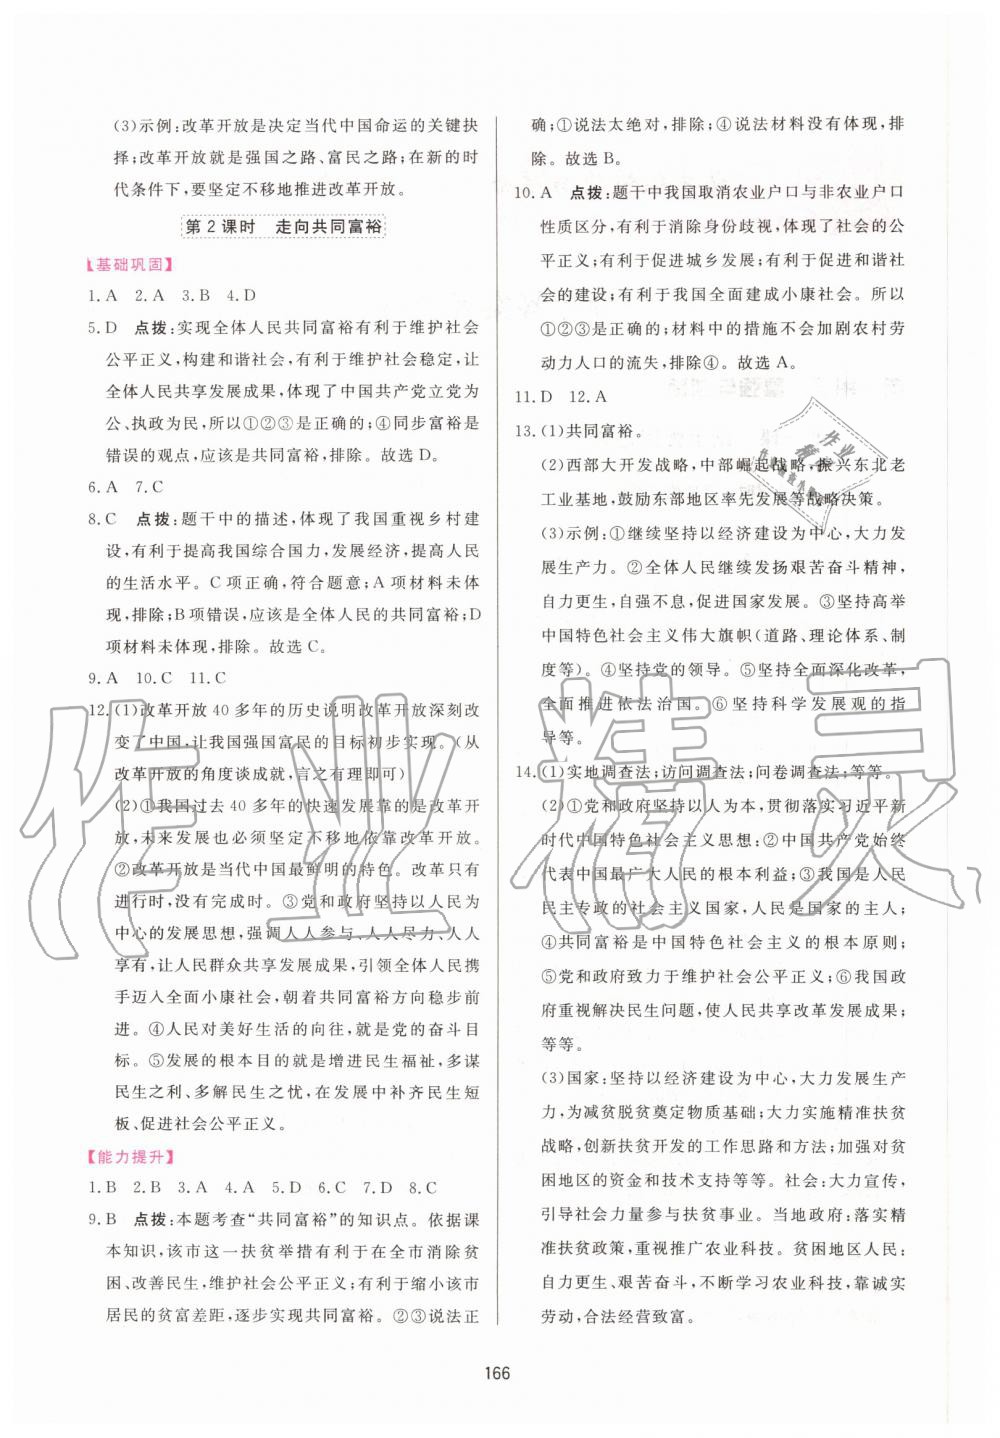 (3)示例:改革开放是决定当代中国命运的关键抉
择;改革开放就是强国之路、富民之路;在新的时
代条件下,要坚定不移地推进改革开放。
第2课时 走向共同富裕
【基础巩固】
1.A 2.A 3.B 4.D
5.D 点拨:实现全体人民共同富裕有利于维护社会
公平正义,构建和谐社会,有利于维护社会稳定,让
全体人民共享发展成果,体现了中国共产党立党为
公、执政为民,所以①②③是正确的;④同步富裕是
错误的观点,应该是共同富裕,排除。故选D。
6.A 7.C
8.C 点拨:题干中的描述,体现了我国重视乡村建
设,有利于提高我国综合国力,发展经济,提高人民
的生活水平。C项正确,符合题意;A项材料未体
现,排除;B项错误,应该是全体人民的共同富裕;D
项材料未体现,排除。故选C。
9.A 10.C 11.C
12.(1)改革开放40多年的历史说明改革开放深刻改
变了中国,让我国强国富民的目标初步实现。(从
改革开放的角度谈成就,言之有理即可)
(2)①我国过去40多年的快速发展靠的是改革开
放,未来发展也必须坚定不移地依靠改革开放。
②改革开放是当代中国最鲜明的特色。改革只有
进行时,没有完成时。③党和政府坚持以人民为
中心的发展思想,强调人人参与、人人尽力、人人
享有,让人民群众共享发展成果,引领全体人民携
手迈入全面小康社会,朝着共同富裕方向稳步前
进。④人民对美好生活的向往,就是党的奋斗目
标。⑤发展的根本目的就是增进民生福祉,多谋
民生之利、多解民生之忧,在发展中补齐民生短
板、促进社会公平正义。
【能力提升】
1.B 2.B 3.A 4.A 5.D 6.C 7.D 8.C
9.B 点拨:本题考查“共同富裕”的知识点。依据课
本知识,该市这一扶贫举措有利于在全市消除贫
困、改善民生,维护社会公平正义;有利于缩小该市
居民的贫富差距,逐步实现共同富裕。②③说法正
确;①说法太绝对,排除;④说法材料没有体现,排
除。故选B。
10.A 点拨:题干中我国取消农业户口与非农业户口
性质区分,有利于消除身份歧视,体现了社会的公
平正义;有利于促进城乡发展;有利于促进和谐社
会的建设;有利于我国全面建成小康社会。所以
①②③是正确的;材料中的措施不会加剧农村劳
动力人口的流失,排除④。故选A。
11.D 12.A
13.(1)共同富裕。
(2)西部大开发战略,中部崛起战略,振兴东北老
工业基地,鼓励东部地区率先发展等战略决策。
(3)示例:①继续坚持以经济建设为中心,大力发
展生产力。②全体人民继续发扬艰苦奋斗精神,
自力更生,自强不息,促进国家发展。③坚持高举
中国特色社会主义伟大旗帜(道路、理论体系、制
度等)。④坚持党的领导。⑤坚持全面深化改革,
全面推进依法治国。⑥坚持科学发展观的指
导等。
14.(1)实地调查法;访问调查法;问卷调查法;等等。
(2)①党和政府坚持以人为本,贯彻落实习近平新
时代中国特色社会主义思想;②中国共产党始终
代表中国最广大人民的根本利益;③我国是人民
民主专政的社会主义国家,人民是国家的主人;
④共同富裕是中国特色社会主义的根本原则;
⑤党和政府致力于维护社会公平正义;⑥我国政
府重视解决民生问题,使人民共享改革发展成果;
等等。
(3)国家:坚持以经济建设为中心,大力发展生产
力,为减贫脱贫奠定物质基础;大力实施精准扶贫
战略,创新扶贫开发的工作思路和方法;加强对贫
困地区的资金和技术支持等等。社会:大力宣传,
引导社会力量参与扶贫事业。当地政府:落实精
准扶贫政策,重视推广农业科技。贫困地区人民:
自力更生、艰苦奋斗,不断学习农业科技,靠诚实
劳动,合法经营致富。
作业精灵
作业
精灵
166